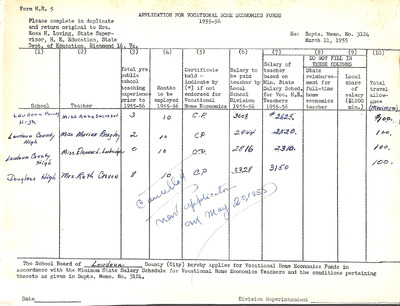 Form H.E. 5
APPLICATION FOR VOCATIONAL HOME ECONOMICS FUNDS
1955-56
Please complete in duplicate
and return original to Mrs.
Rosa H. Loving, State Super-
visor, H. E. Education, State
Dept. of Education, Richmond 16, Va.
Re: Supts. Memo. No. 3124
March 11, 1955
School
Teacher
Total yrs. public school teaching experience prior to 1955-56
Months to be employed 1955-56
Certificate held - indicate by (*) if not endorsed for Vocational Home Economics
Salary to be paid teacher by Local Division 1955-56
Salary of teacher based on Min. State Salary Sched. for Voc. H.E. Teachers 1955-56
DO NOT FILL IN THESE COLUMNS
State reimbursement for full-time home economics
Local share of salary ($2200 min.)
Total travel allowance (Maximum)
(1) (2) (3) (4) (5) (6) (7) (8) (9) (10)
Loudoun County High Miss 3 10 C.P. 3003 $2625. $100.
Loudoun County High Miss 2 10 C.P. 2944 2520. 100.
Loudoun County High Miss 0 10 C.P. 2816 2310. 100.
Douglass High Mrs. Ruth 8 10 C.P. 3328 3150
Cancelled
new application
on May 20, 1955
The School Board of Loudoun County (City) hereby applies for Vocational Home Economics Funds in
accordance with the Minimum State Salary Schedule for Vocational Home Economics Teachers and the conditions pertaining
thereto as given in Supts. Memo. No. 3124.
Date
Division Superintendent